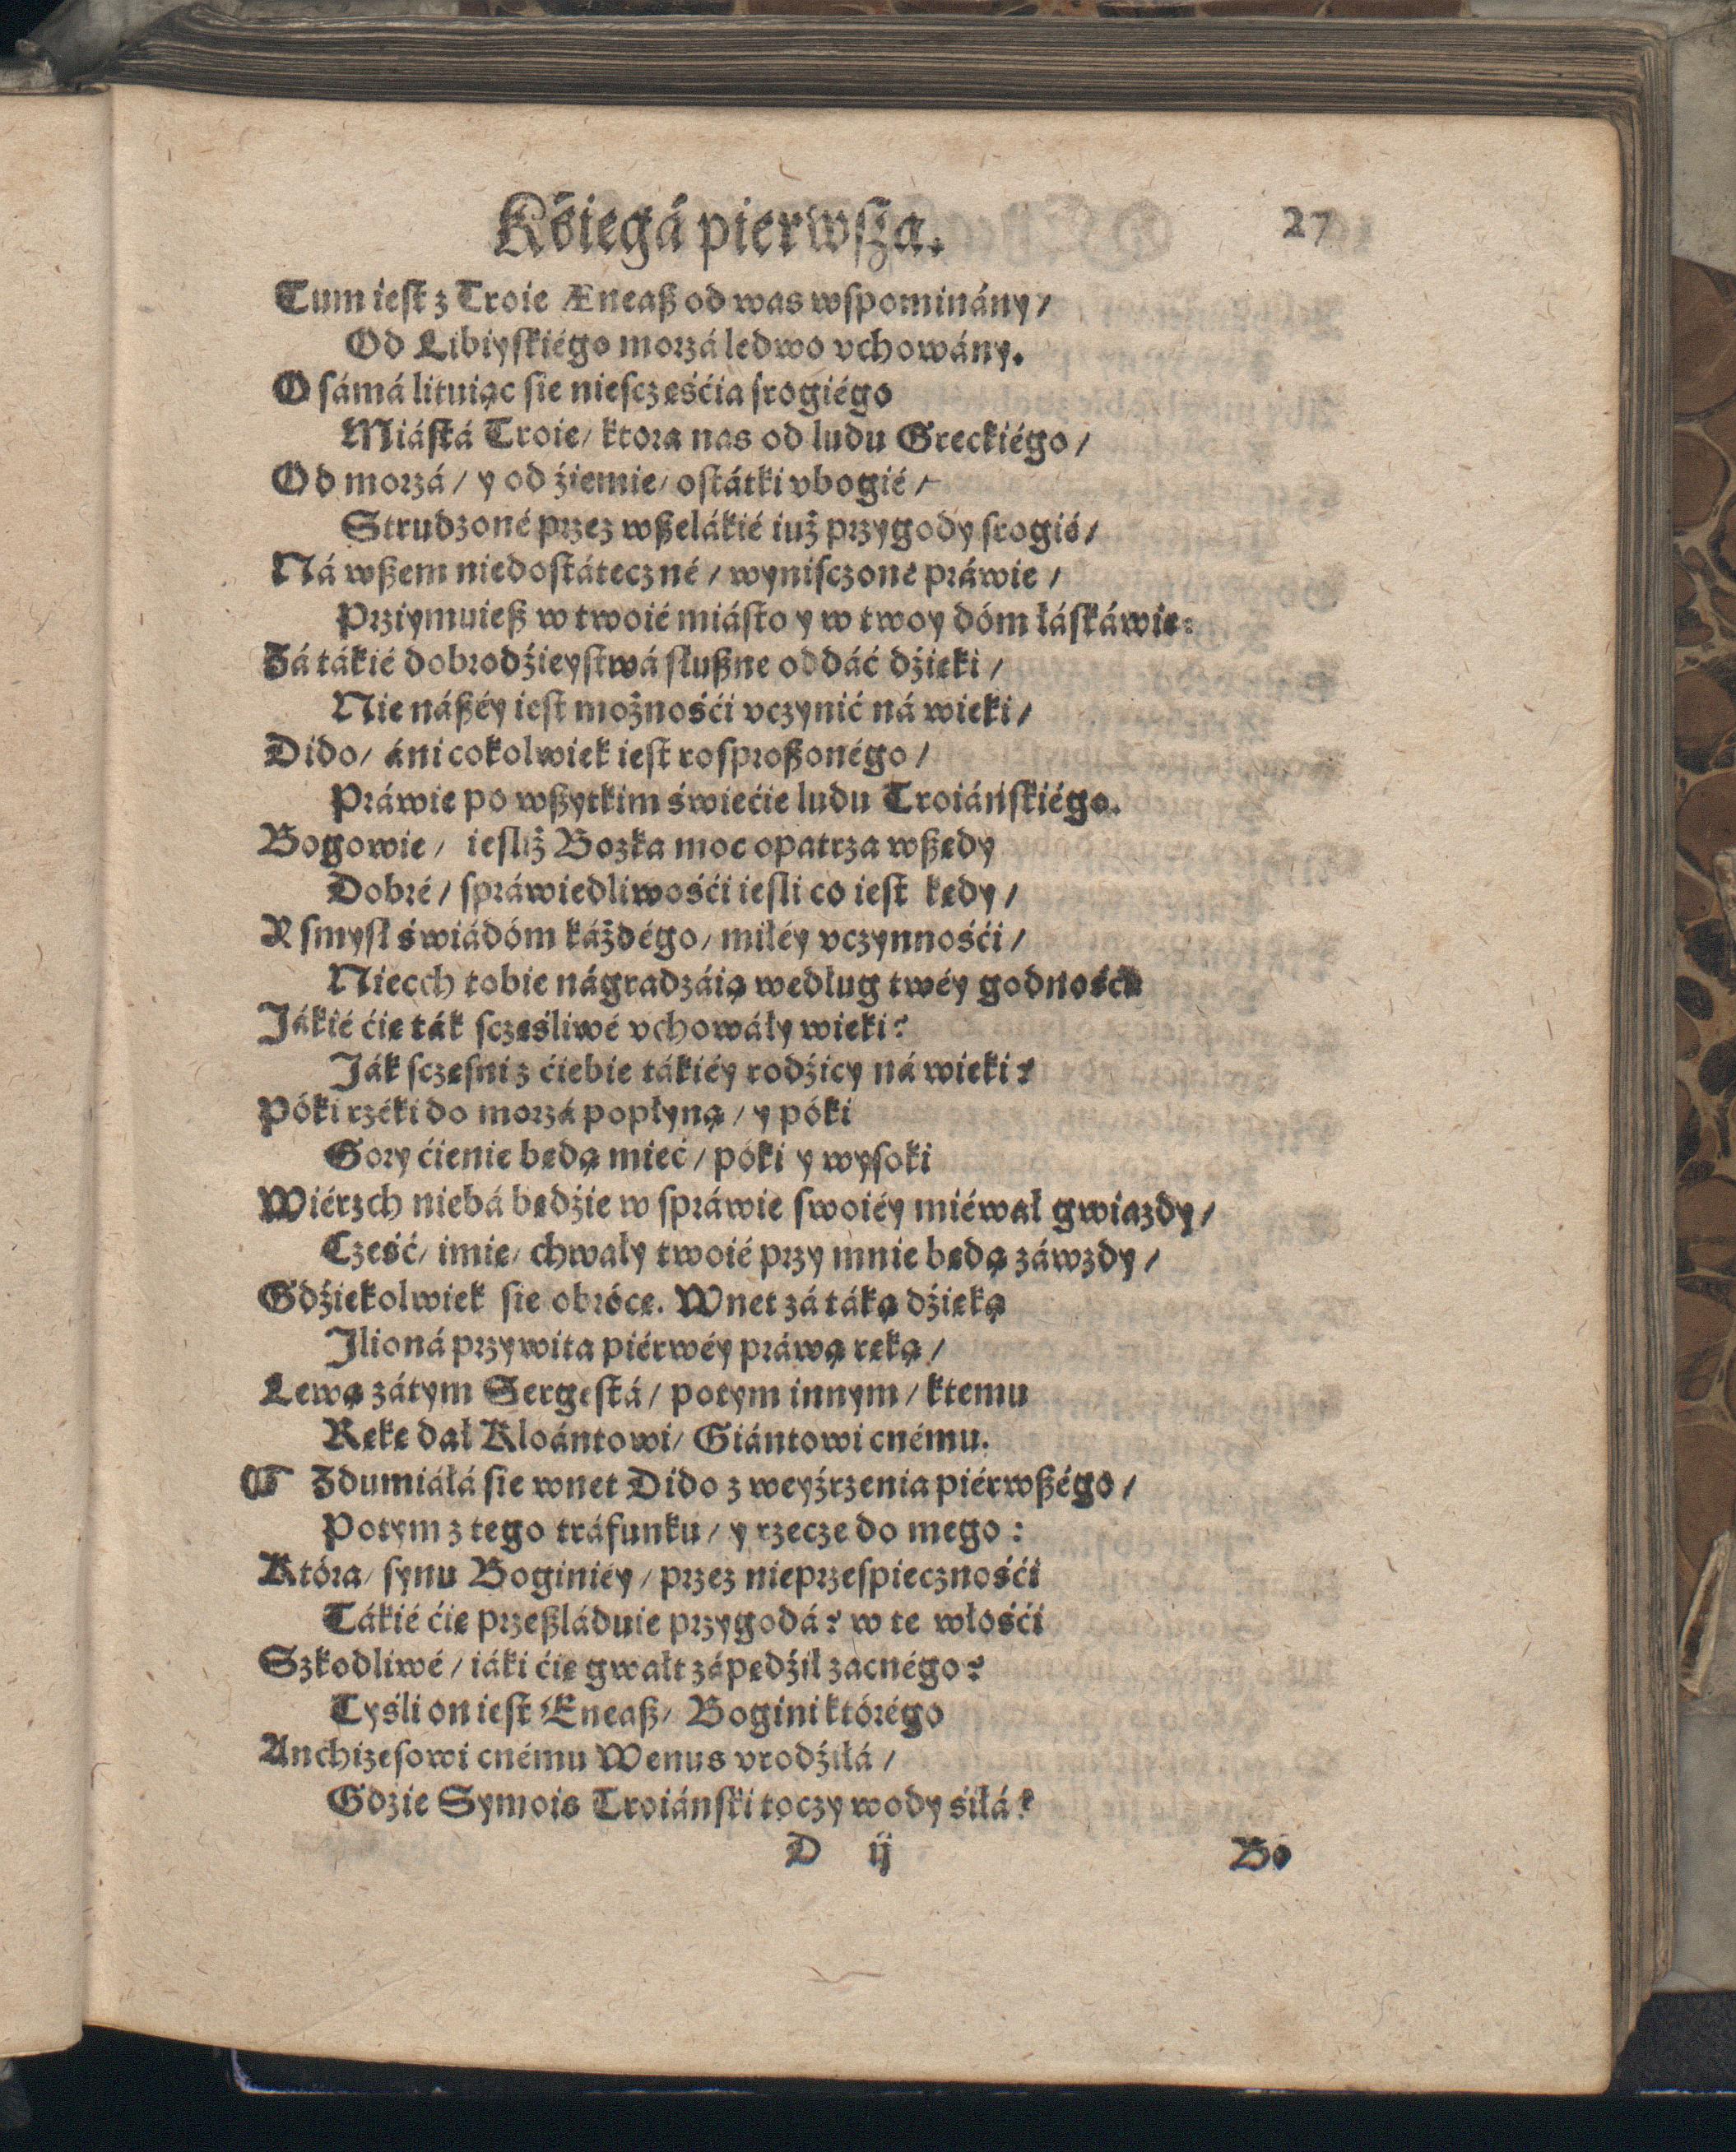 Kśięgá pierwſza. 27
Tum ieſt z Troie Æneaß od was wſpominány /
Od Libiyſkiégo morzá ledwo vchowány.
O ſámá lituiąc ſie nieſczęśćia ſrogiégo
Miáſtá Troie / ktora nas od ludu Greckiégo /
Od morzá / y od źiemie / oſtátki vbogié /
Strudzoné przez wßelákié iuż przygody ſrogié /
Ná wßem niedoſtáteczné / wyniſczoné práwie /
Przyymuieß w twoié miáſto y w twoy dóm łáſkáwie:
Zá tákié dobrodźieyſtwá ſłußne oddáć dźięki /
Nie náßéy ieſt możnośći vczynić ná wieki /
Dido / áni cokolwiek ieſt roſproßonégo /
Práwie po wßytkim świećie ludu Troiáńſkiégo.
Bogowie / ieſliż Bozka moc opatrza wßędy
Dobré / ſpráwiedliwośći ieſli co ieſt kędy /
Y ſmyſł świádóm káżdégo / miłéy vczynnośći /
Niecch tobie nágradzáią według twéy godnośći
Jákié ćię ták ſczęśliwé vchowáły wieki?
Ják ſczęſni z ćiebie tákiéy rodźicy ná wieki?
Póki rzéki do morzá popłyną / y póki
Gory ćienie będą mieć / póki y wyſoki
Wiérzch niebá będźie w ſpráwie ſwoiéy miéwał gwiazdy /
Cześć / imię / chwały twoié przy mnie będą záwzdy /
Gdźiekolwiek ſie obrócę. Wnet zá táką dźięką
Jlioná przywita piérwéy práwą ręką /
Lewą zátym Sergeſtá / potym innym / ktemu
Rękę dał Kloántowi / Giántowi cnému.
☞ Zdumiáłá ſie wnet Dido z weyźrzenia piérwßégo /
Potym z tego tráfunku / y rzecze do mego:
Która / ſynu Boginiéy / przez nieprzeſpiecznośći
Tákié ćię przeßláduie przygodá? w te włośći
Szkodliwé / iáki ćię gwałt zápędźił zacnégo?
Tyśli on ieſt Æneaß / Bogini którégo
Anchizeſowi cnému Wenus vrodźiłá /
Gdzie Symois Troiánſki toczy wody siłá?
D ij Bo